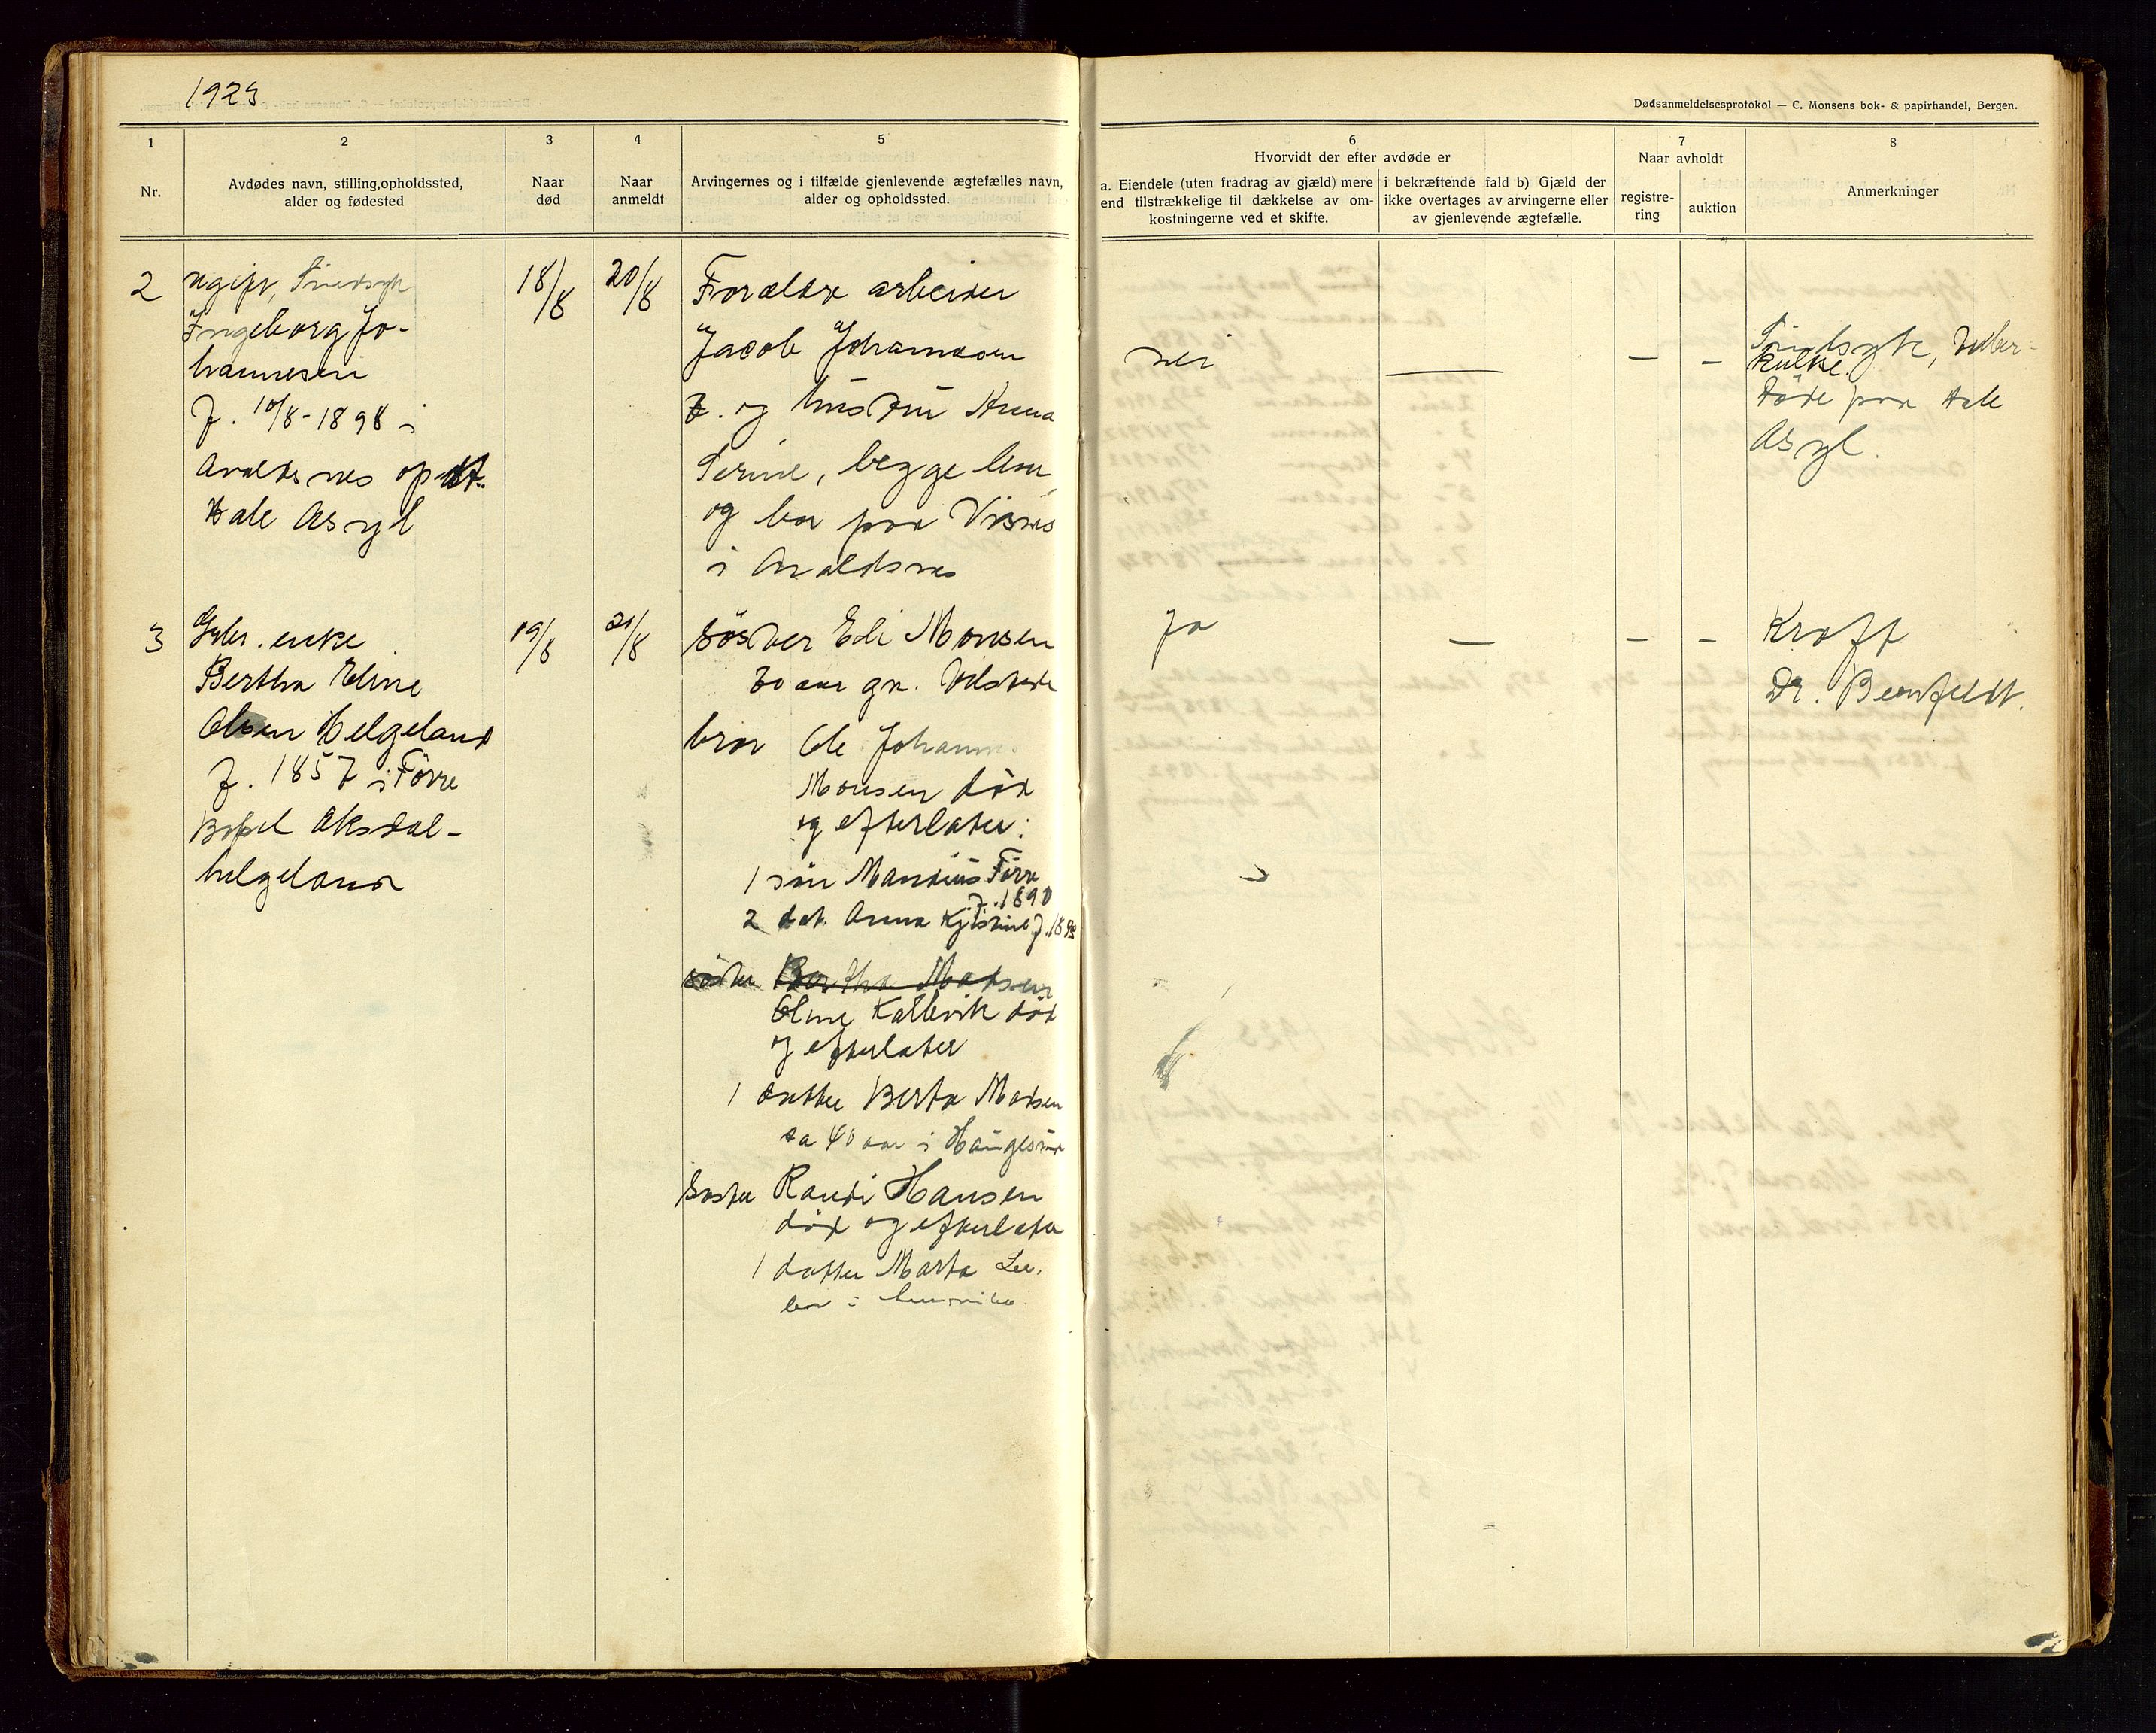 1923
Dødsanmeldelsesprotokol — C. Monsens bok- & papirhandel, Bergen.
1
Nr.
2
Avdødes navn, stilling, opholdssted,
alder og fødested
3
Naar
død
4
Naar
anmeldt
5
Arvingernes og i tilfælde gjenlevende ægtefælles navn,
alder og opholdssted.
6
Hvorvidt der efter avdøde er
a. Eiendele (uten fradrag av gjæld) mere
end tilstrækkelige til dækkelse av om-
kostningerne ved et skifte.
i bekræftende fald b) Gjæld der
ikke overtages av arvingerne eller
av gjenlevende ægtefælle.
7
Naar avholdt
registre-
ring
auktion
8
Anmerkninger
2
ugift, Sindsyk
Ingeborg Jo-
hannesen
f. 10/8-1898 i
Avaldsnes op
Dale Asyl
18/8
20/8
Forældre arbeider
Jacob Johannesen
og hustru Anna
Serine, begge lever
og bor paa Visnes
i Avaldsnes
nei
—
—
—
Sindsyk, Tuber-
kulose.
Døde paa Dale
Asyl.
3
Gbr. enke
Bertha Eline
Olsen Helgeland
f. 1857 i Førre
Bopæl Aksdal-
helgeland
19/8
21/8
søster Eli Monsen
70 aar gr.
bror Ole Johannes
Monsen død
og efterlater:
1 søn Mandius Førre
f. 1890
2 dat. Anna Kjistine f. 18
søster Bertha Madsen
Eline Kallevik død
og efterlater
1 datter Berta Madsen
ca 40 aar i Haugesund
søster Randi Hansen
død og efterlater
1 datter Marta Lee,
bor i Amerika.
Ja
—
—
—
Kræft
Dr. Benfeldt.